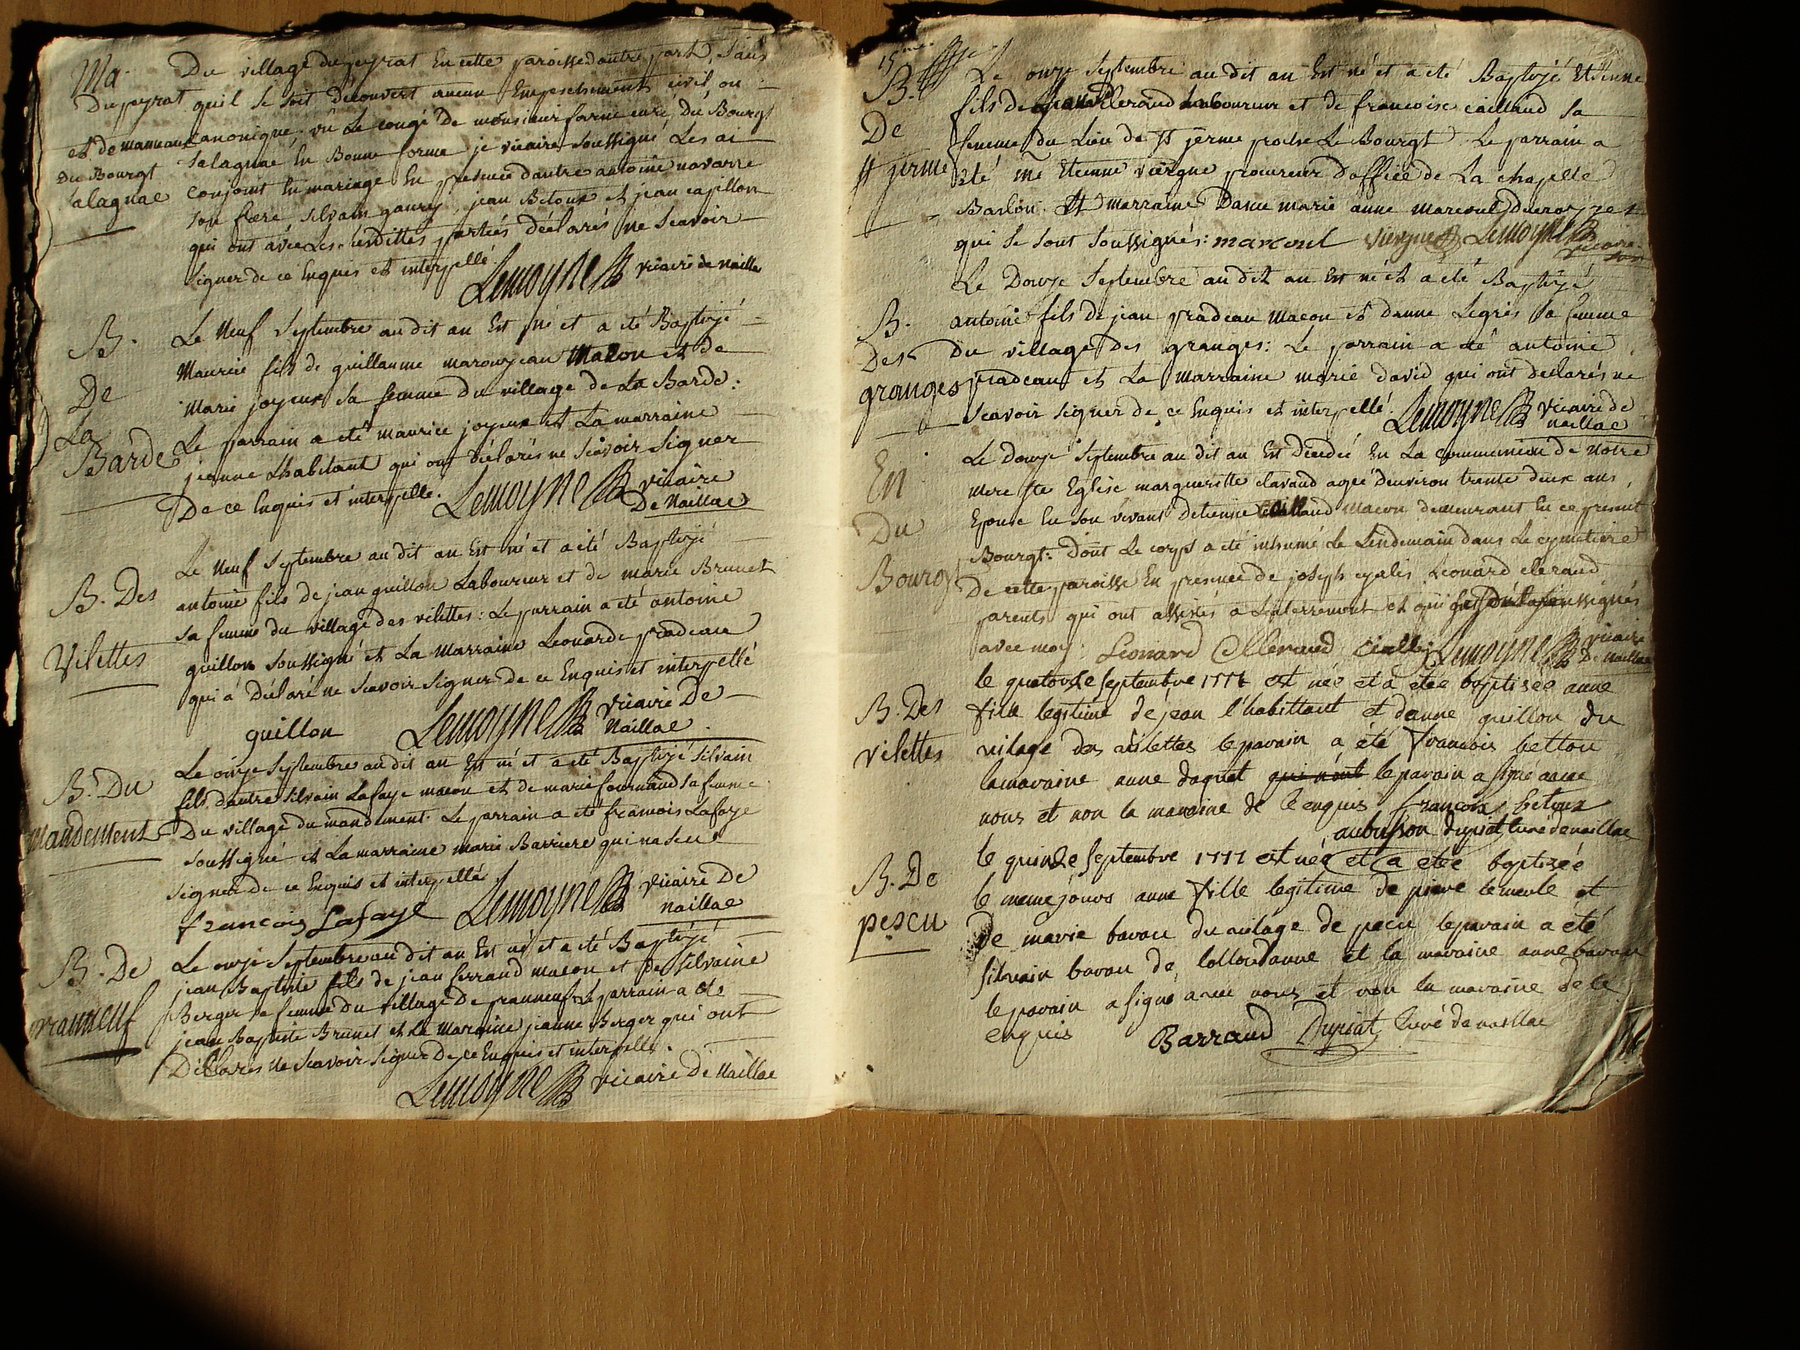 Ma.
Dupeyrat
et de manuau
Du Bourgt
Salagnac
Du village dupeyrat En cette paroisse dautre part, Sans
quil se soit Découvert aucun Empeschement civil ou
canonique, vû Le congé De monsieur farine curé Du Bourgt
Salagnac En Bonne forme je vicaire soussigné Les ai
conjoint En mariage En presence dautre antoine navarre
son frere, silvain gaury, jean Betoux et jean capillon
qui ont avec Les susdittes parties déclarés ne Scavoir
Signer de ce Enquis et interpellé.
Lemoyne vicaire de naillac
B.
De
La
Barde
Le Neuf Septembre audit an Est né et a été Baptizé
Maurice fils de guillaume marouzeau Macon et de
Marie joyeux sa femme du village de La Barde:
Le parrain a eté maurice joyeux et La marraine
jeanne Lhabitant qui ont Déclarés ne Scavoir Signer
De ce Enquis et interpelle. Lemoyne vicaire
De Naillac
B. Des
Vilettes
Le Neuf Septembre audit an Est né et a été Baptizé
antoine fils de jean guillon Laboureur et de marie Brunet
sa femme du village des vilettes: Le parrain a été antoine
guillon soussigné et La Marraine Leonarde pradeau
qui a Déclaré ne Scavoir Signer de ce Enquis et interpellé
guillon Lemoyne vicaire De
Naillac
B. Du
mandement
Le onze Septembre audit an Est né et a eté Baptizé Silvain
fils dautre Silvain Lafaye macon et de marie fournaud sa femme
Du village du mandement. Le parrain a eté francois Lafaye
soussigné et La marraine marie Barriere qui na sçu
signer de ce Enquis et interpellé
francois Lafaye Lemoyne vicaire De
naillac
B. De
pranneuf
Le onze Septembre au dit an Est né et a été Baptizé
jean Baptiste fils de jean ferrand macon et de Silvaine
Berger sa femme du village De pranneuf Le parrain a eté
jean Baptiste Brunet et La Marraine jeanne Berger qui ont
Déclarés ne Scavoir Signer De ce Enquis et interpellé.
Lemoyne vicaire de Naillac
15
B.
De
St jerme
Le onze Septembre au dit an Est né et a eté Baptizé Etienne
fils de Clerand Laboureur et de francoise caillaud sa
femme du Lieu de St jerme proche Le Bourgt. Le parrain a
été me Etienne viergne procureur d'office de La chapelle
Barlon. Et marraine Dame marie anne marcoul
qui se sont soussignés: marcoul viergne Lemoyne vicaire
B.
Des
granges
Le Douze Septembre audit an Est né et a eté Baptizé
antoine fils de jean pradeau Macon et danne Legris sa femme
Du village des granges: Le parrain a eté antoine
pradeau et La Marraine marie david qui ont déclarés ne
Scavoir signer de ce Enquis et interpellé. Lemoyne vicaire de
naillac
En
Du
Bourgt
Le Douze Septembre au dit an Est Decedée En La communion de notre
mere ste Eglise marguerite clavaud agée denviron trente deux ans,
Epouse En son vivant detienne caillaud macon demeurant En ce present
Bourgt: dont Le corps a eté inhumé Le Lendemain dans Le cymetiere
De cette paroisse En presence de joseph cyalis Leonard clerand
parents qui ont assistés a Lenterrement et qui se sont soussignés
avec moy. Leonard Cllerand cialis Lemoyne vicaire
De Naillac
B. Des
vilettes
le quatorze septembre 1777 est née et a etée baptisée anne
fille legitime de jean l'habittant et danne guillon du
vilage des vilettes le parain a été francois betton
la maraine anne daquet qui n'ont le parain a signé avec
nous et non la maraine de ce enquis francois betoux
aubusson Dupiat curé de naillac
B. De
pescu
le quinze septembre 1777 est née et a etée baptisée
le meme jours anne fille legitime de piere lemeule et
De marie bavau du vilage de pecu le parain a été
silvain bavau de lolloudanne et la maraine anne bavau
le parain a signé avec nous et non la maraine de ce
enquis Barraud Dupiat Curé de naillac